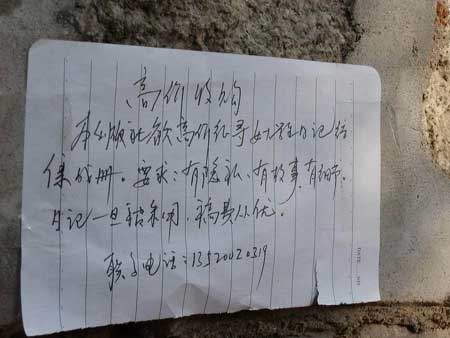 高价收购
本出版社欲高价征寻女学生日记结
集成册。要求：有隐私、有故事、有细节、
日记一旦被采用，稿费从优。
联系电话：13520020319